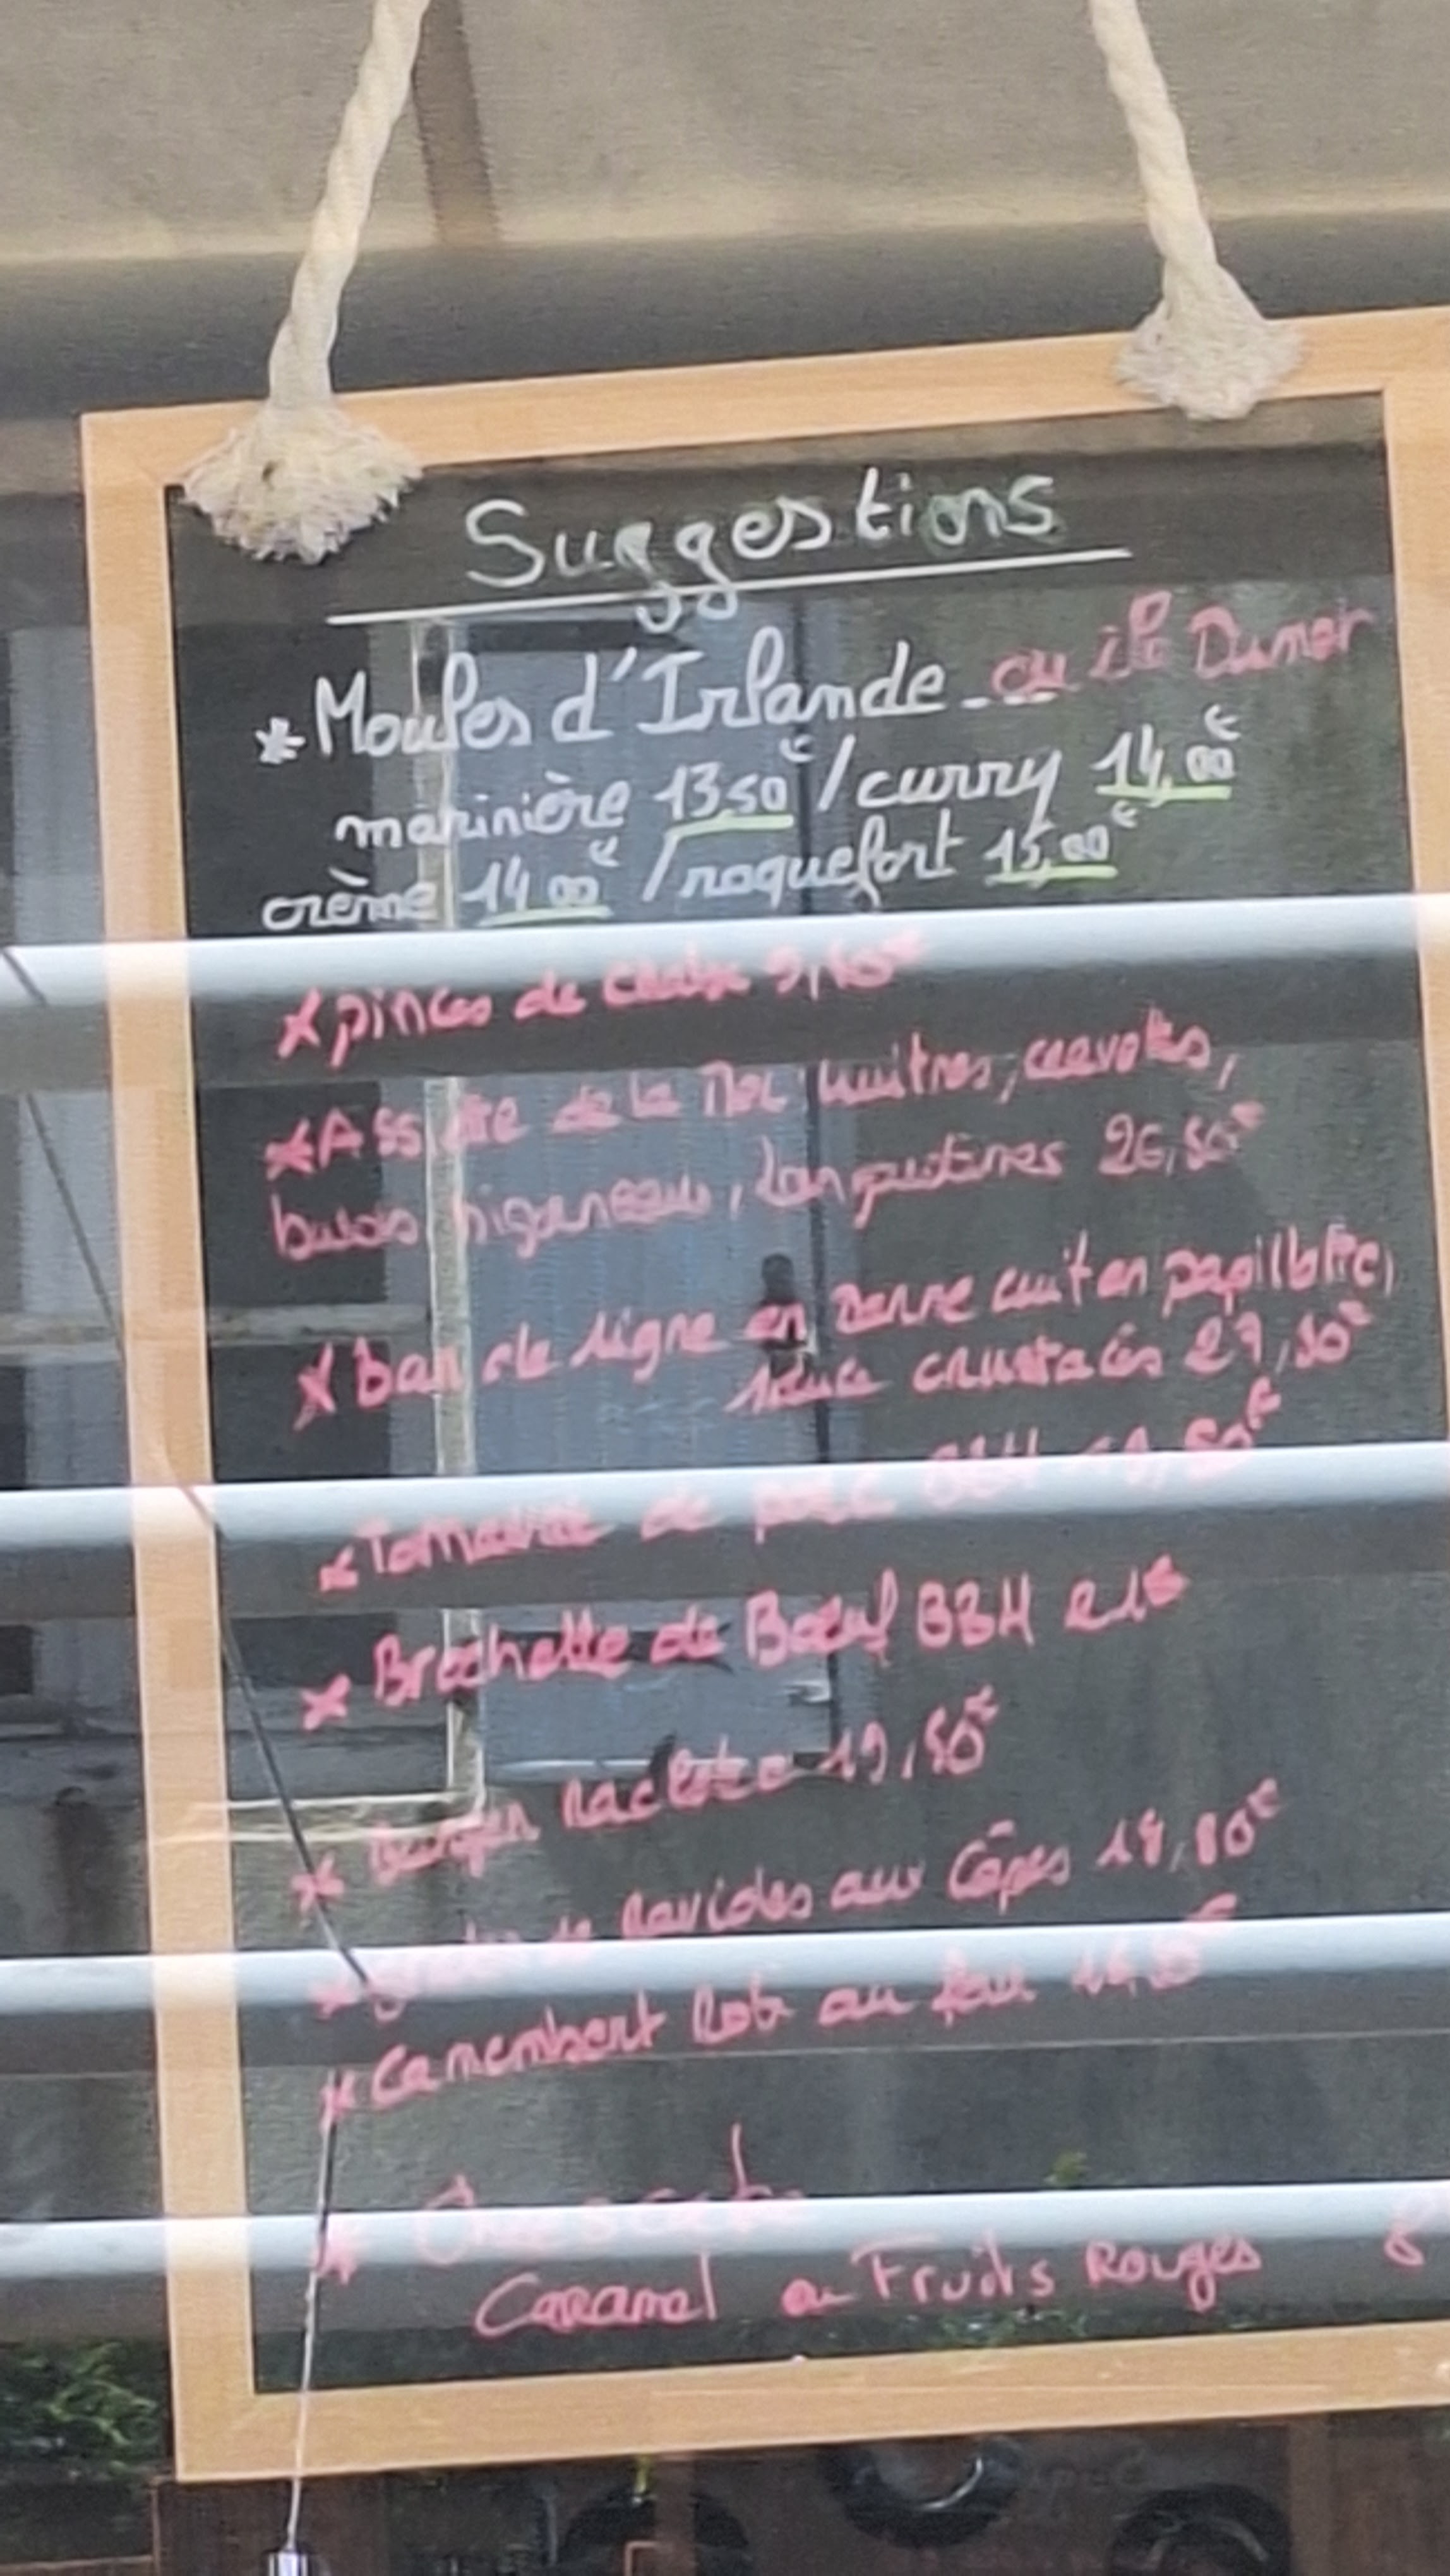 Suggestions
*Moules d'Irlande - ou
marinière 13,50€ / curry 14,00€
crème 14,00€ / roquefort 15,00€
* pinces de
* Assiette de la Mer huitres, crevettes,
bulots bigorneaux, langoustines 26,50€
* bar de ligne en darne cuit en papillotte,
sauce crustacés 27,50€
* de porc BBH
* Brochette de Boeuf BBH 21€
* burger Raclette 19,50€
* de Ravioles aux Cèpes
* Camembert Roti au four
* Cheesecake
Caramel ou Fruits Rouges